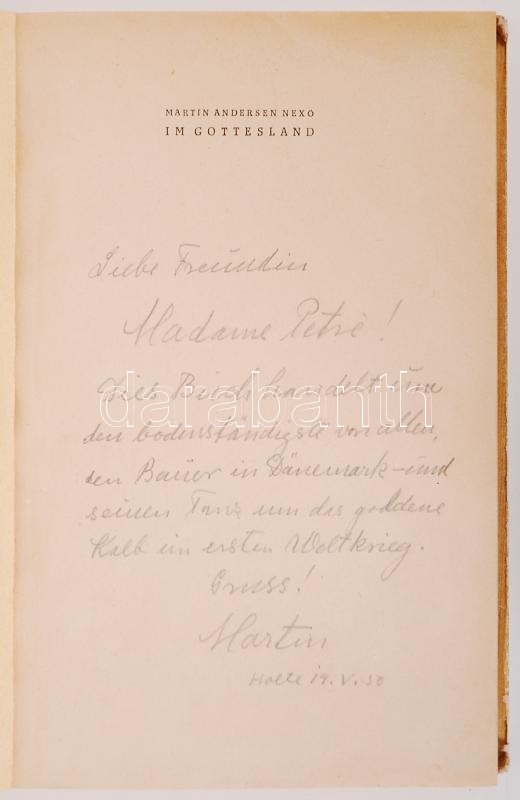 MARTIN ANDERSEN NEXÖ
IM GOTTESLAND
Liebe Freundin
Madame Petré!
Dies Buch handelt um
den bodenständigste von allen,
den Bauer in Dänemark – und
seinen Tanz um das goldene
Kalb im ersten Weltkrieg.
Gruss!
Martin
Holte 19.V.50
darabanth